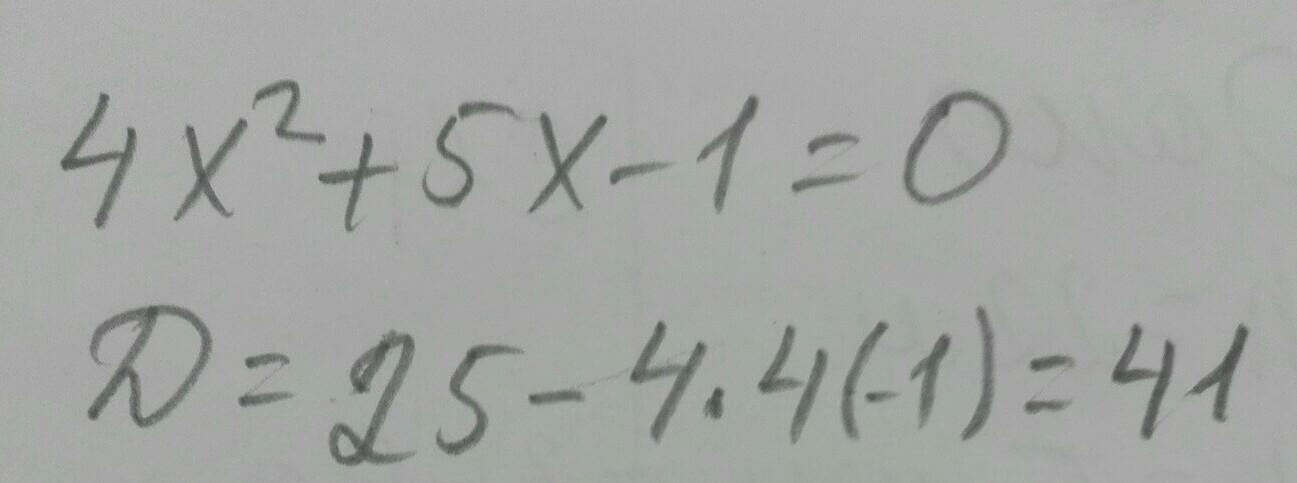 4x²+5x-1=0
D=25-4·4(-1)=41